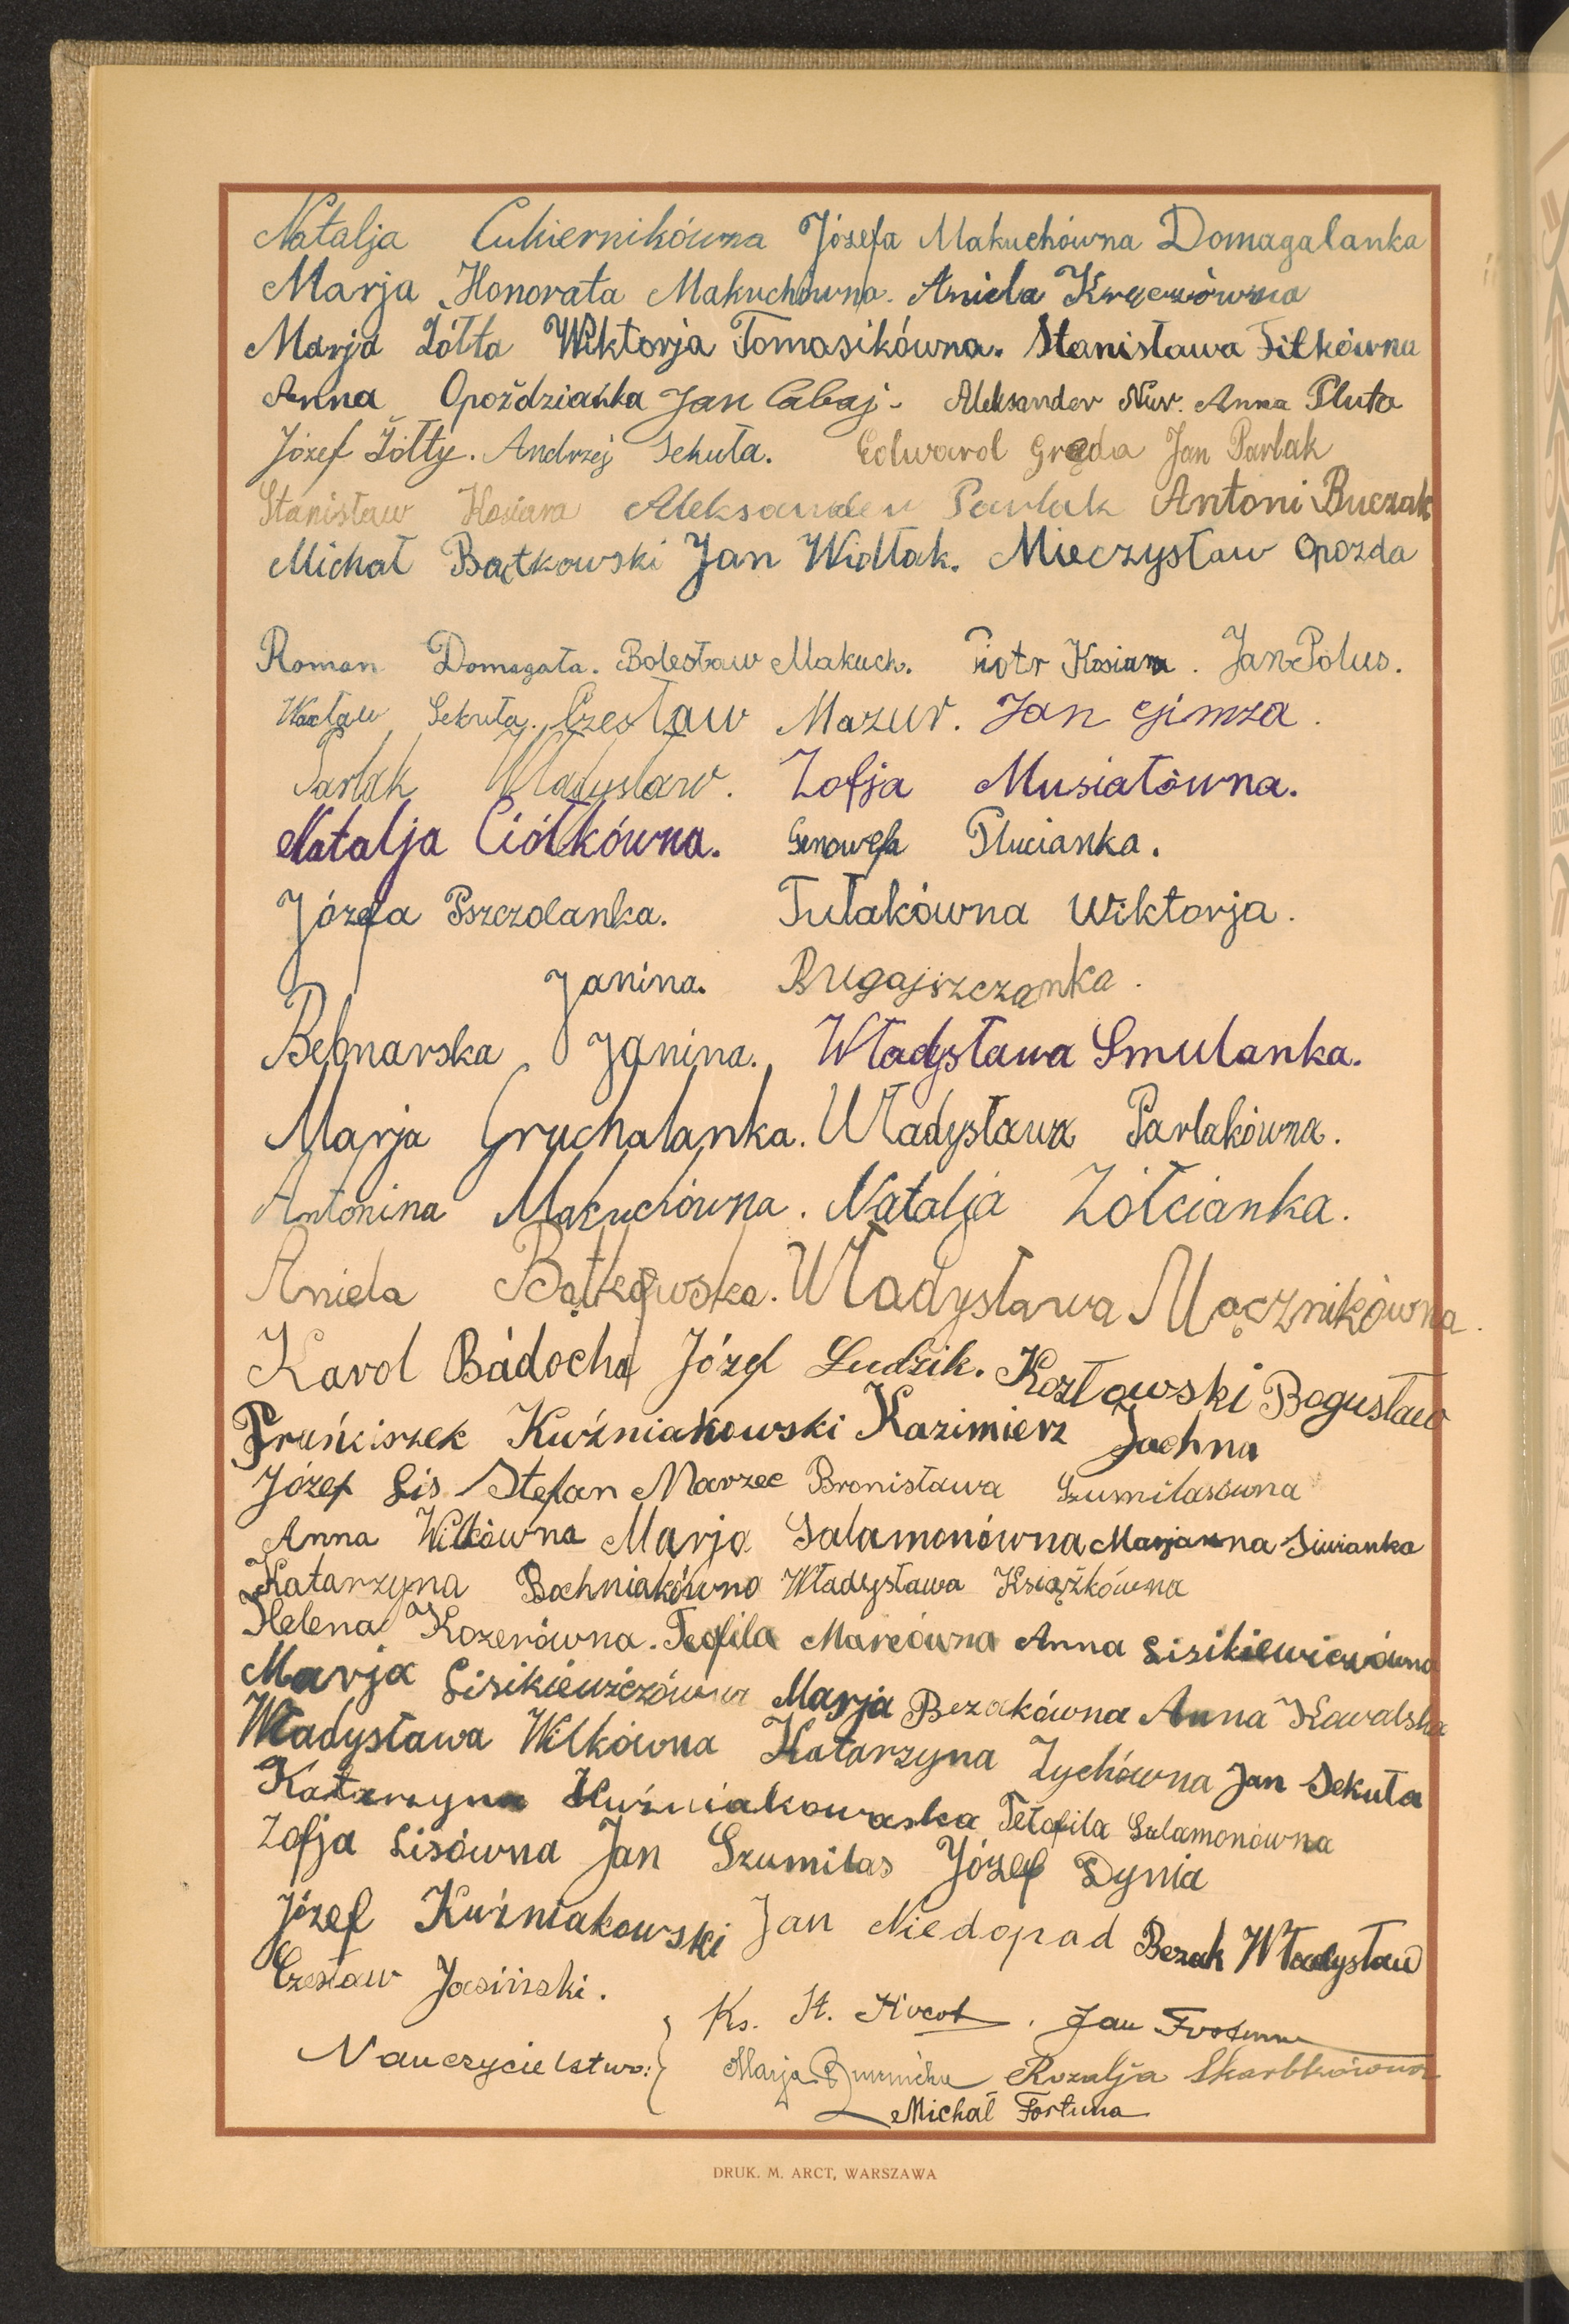 Natalja Cukiernikówna Józefa Makuchówna Domagalanka
Marja Honorata Makuchówna. Aniela Kręczówna
Marja Żółta Wiktorja Tomasikówna. Stanisława Fitkówna
Anna Opoździanka Jan Cabaj. Aleksander Nur. Anna Pluta
Józef Żółty. Andrzej Sekuła. Edward Gręda Jan Parlak
Stanisław Kosiara Aleksander Parlak Antoni Buczak
Michał Bątkowski Jan Widłak. Mieczysław Opozda
Roman Domagała. Bolesław Makuch. Piotr Kosiara. Jan Polus.
Wacław Sekuła. Czesław Mazur. Jan Gimza.
Parlak Władysław. Zofja Musiałówna.
Natalja Ciółkówna. Genowefa Plucianka.
Józefa Pszczolanka. Tułakówna Wiktorja.
Janina. Bugajszczanka.
Bebnarska Janina. Władysława Smulanka.
Marja Gruchalanka. Władysława Parlakówna.
Antonina Makuchówna. Natalja Żółcianka.
Aniela Bątkowska. Władysława Mącznikówna.
Karol Badocha Józef Ludzik. Kozłowski Bogusław
Franciszek Kuźniakowski Kazimierz Jachna
Józef Lis Stefan Marzec Bronisława Szumilasówna
Anna Wilkówna Marja Salamonówna Marjanna Siwianka
Katarzyna Bochniakówna Władysława Książkówna
Helena Kozerówna. Teofila Marcówna Anna Lisikiewiczówna
Marja Lisikiewiczówna Marja Bezakówna Anna Kowalska
Władysława Wilkówna Katarzyna Zychówna Jan Sekuła
Katarzyna Kuźniakowaska Teofila Salamonówna
Zofja Lisówna Jan Szumilas Józef Dynia
Józef Kuźniakowski Jan Niedopad Bezak Władysław
Czesław Jasiński.
Ks. St. Jan Fortuna
Nauczycielstwo: Marja Rozalja Skarbkówna
Michał Fortuna
DRUK. M. ARCT, WARSZAWA